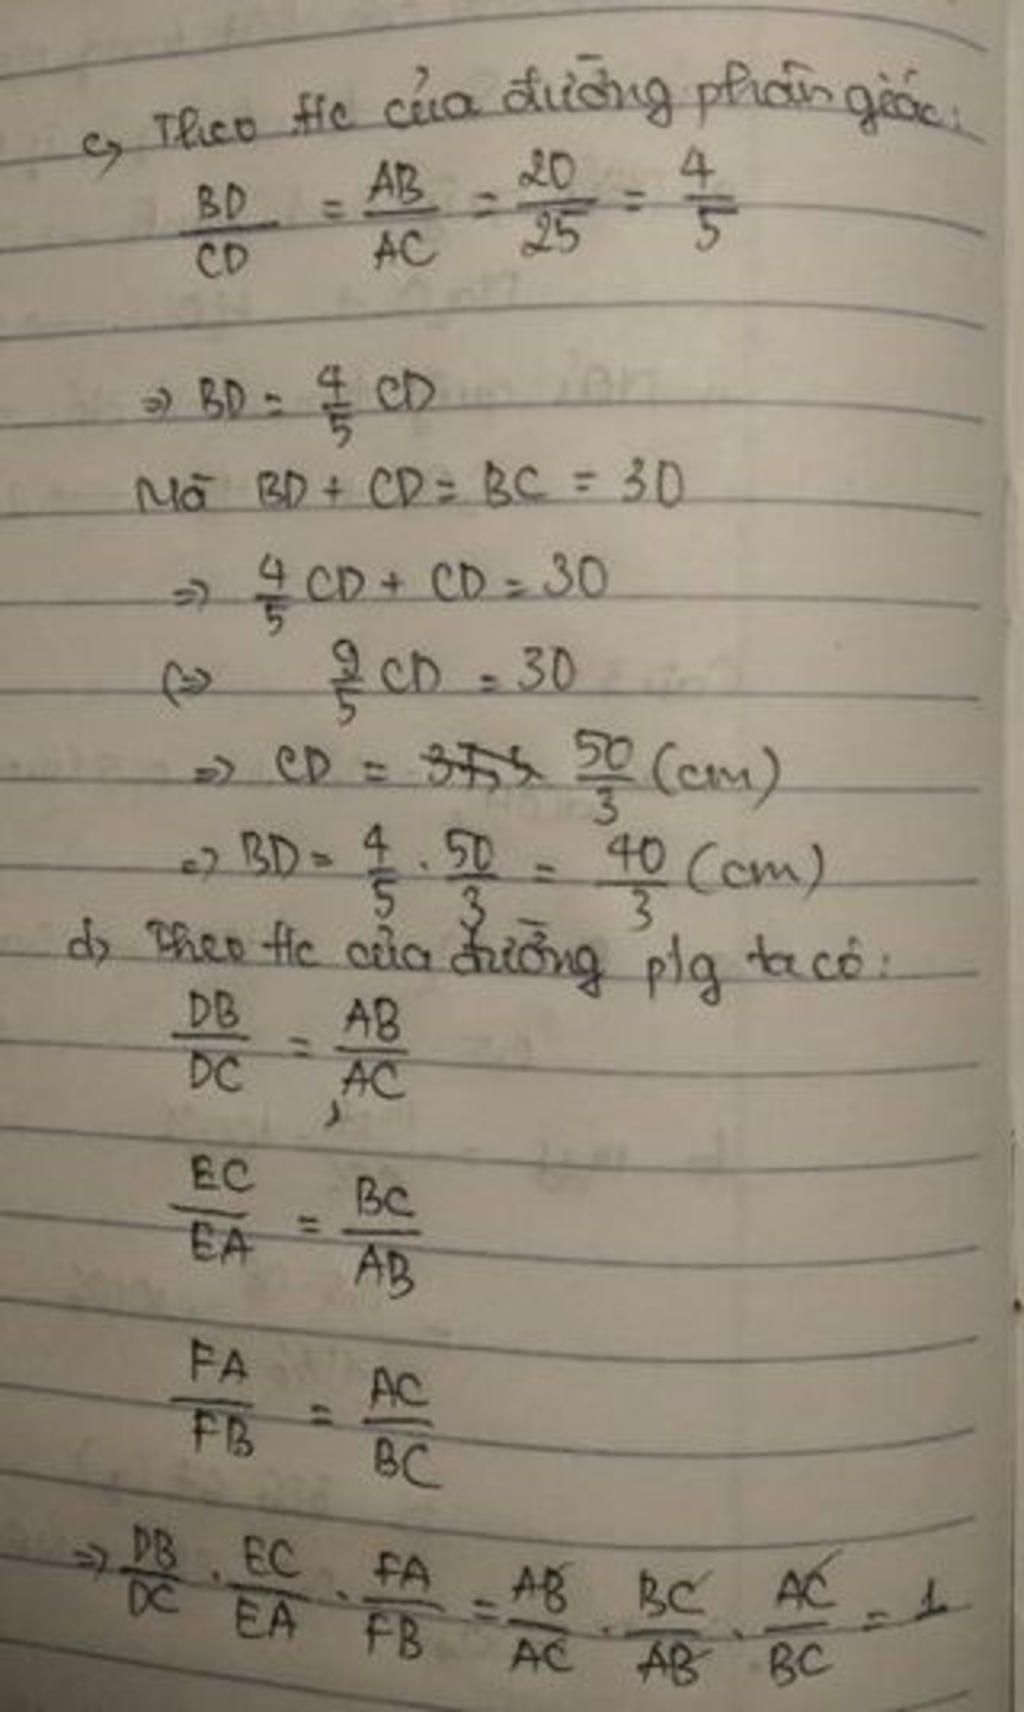 c, Theo t/c của đường phân giác:
BD/CD = AB/AC = 20/25 = 4/5
=> BD = 4/5 CD
Mà BD + CD = BC = 30
=> 4/5 CD + CD = 30
<=> 9/5 CD = 30
=> CD = 50/3 (cm)
=> BD = 4/5 . 50/3 = 40/3 (cm)
d, Theo t/c của đường p/g ta có:
DB/DC = AB/AC,
EC/EA = BC/AB
FA/FB = AC/BC
=> DB/DC . EC/EA . FA/FB = AB/AC . BC/AB . AC/BC = 1